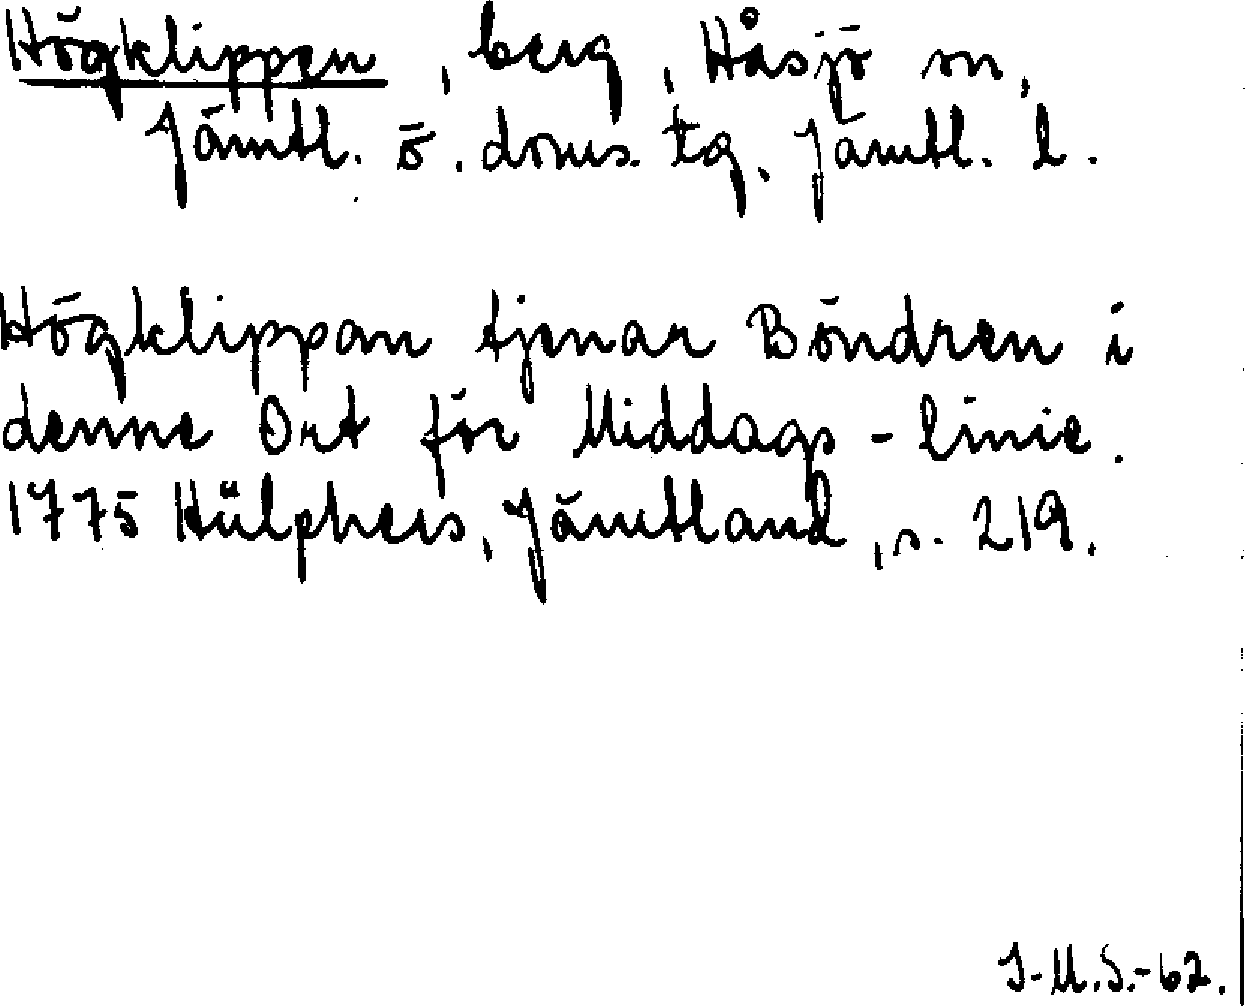 Högklippen, berg, Håsjö sn,
Jämtl. ö. doms. tg. Jämtl. l.
Högklippan tjenar Böndren i
denne Ort för Middags-linie.
1775 Hülphers, Jämtland, s. 219.
I-M.S.-62.